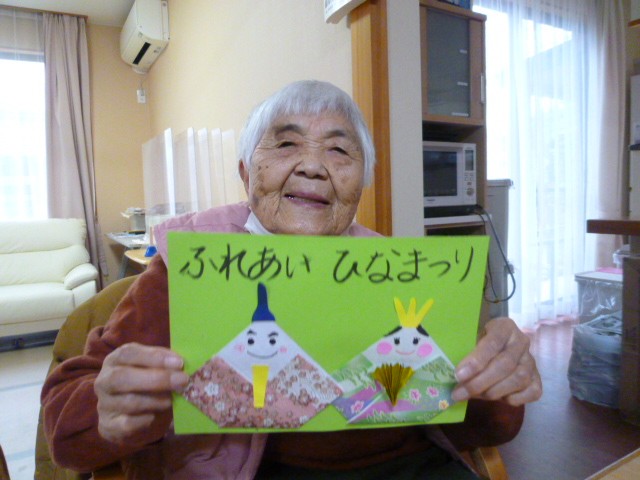 ふれあい ひなまつり